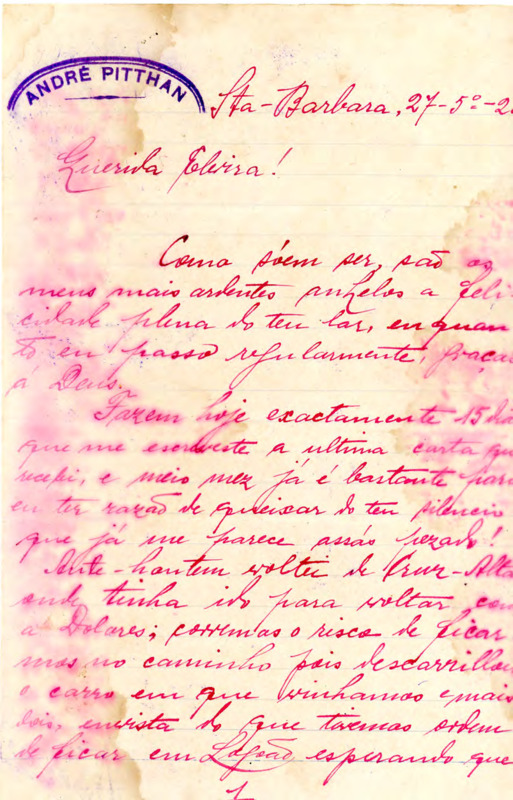 ANDRÉ PITTHAN
Sta-Barbara, 27-5º-2
Querida Elvira!
Como sóem ser, são os
meus mais ardentes anhelos a feli-
cidade plena do teu lar, enquan
to eu passo regularmente, graças
á Deus.
Fazem hoje exactamente 15 di
que me escreveste a ultima carta qu
recebi, e meio mez já é bastante para
eu ter razaõ de queixar do teu silencio
que já me parece assás pezado!
Ante-hontem voltei de Cruz-Alta
onde tinha ido para voltar com
a Dolores; corremos o risco de ficar
mos no caminho pois descarrillou
o carro em que winhamos e mais
dois, envista do que tivemos ordem
de ficar em esperando que
1